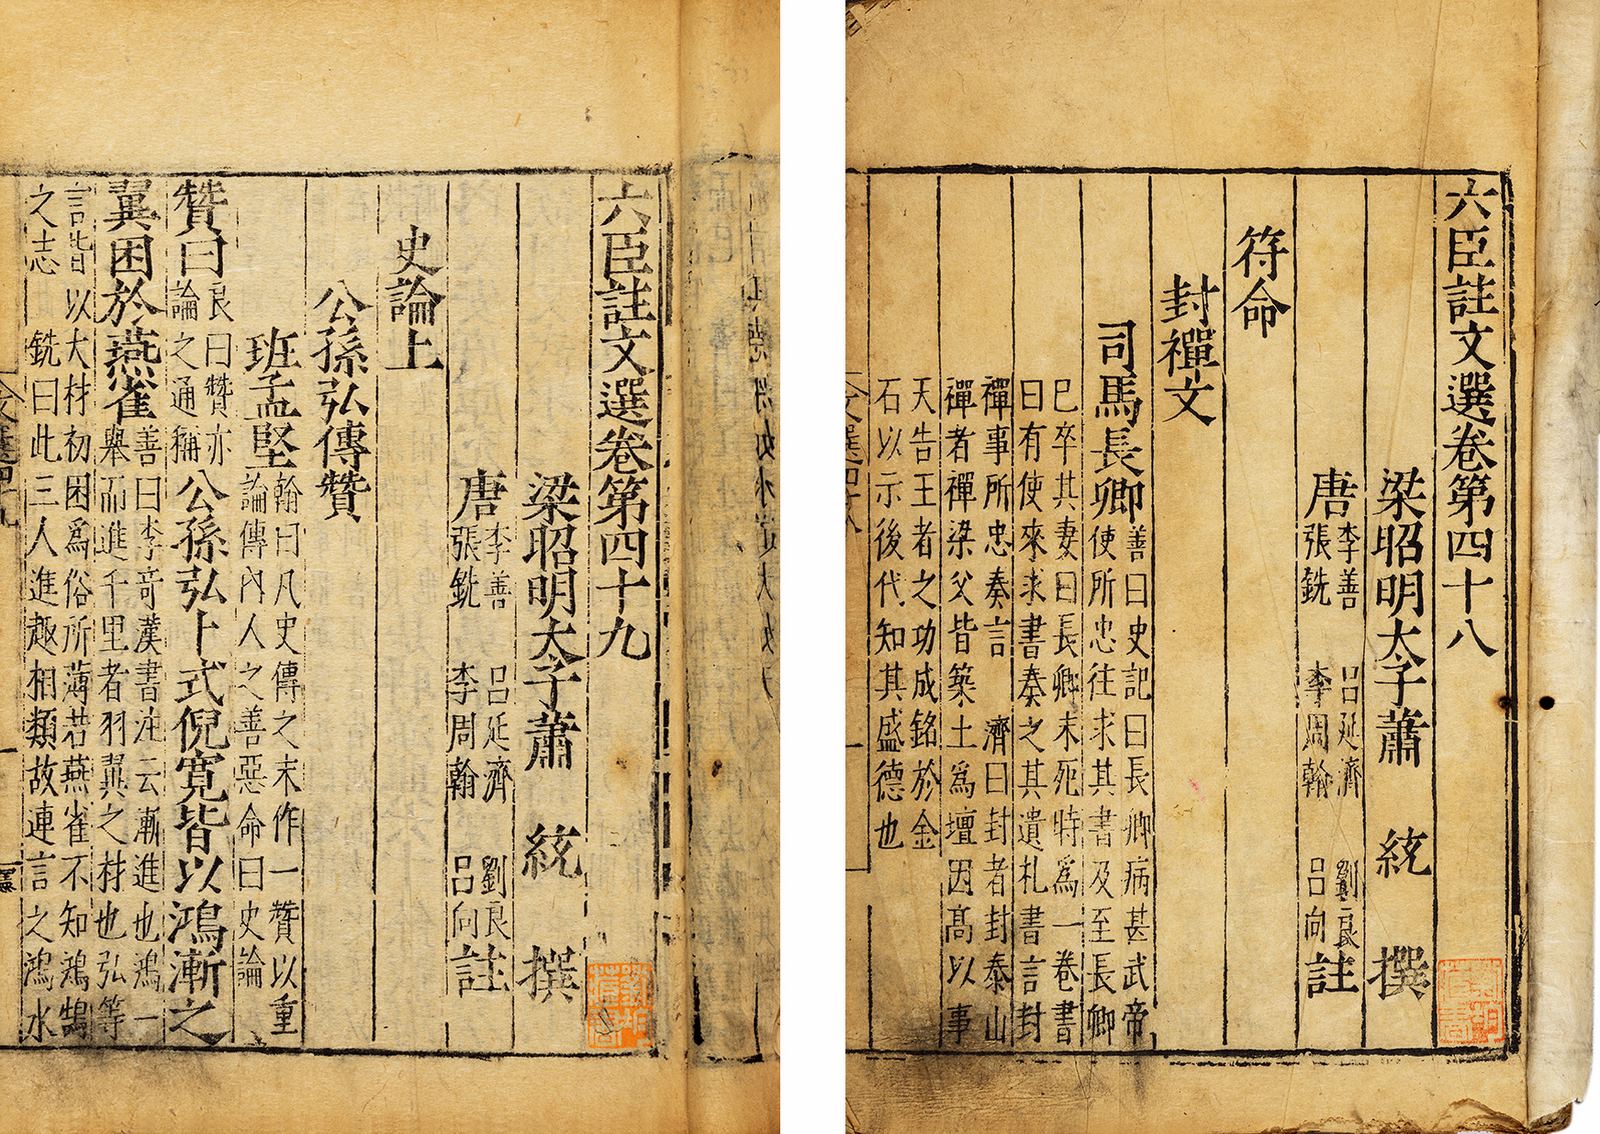 六臣註文選卷第四十八
梁昭明太子蕭 統 撰
唐 李善 呂延濟 劉良
張銑 李周翰 呂向 註
符命
封禪文
司馬長卿 善曰史記曰長卿病甚武帝
使所忠往求其書及至長卿
已卒其妻曰長卿未死時爲一卷書
曰有使來求書奏之其遺札書言封
禪事所忠奏言 濟曰封者封泰山
禪者禪梁父皆築土爲壇因高以事
天告王者之功成銘於金
石以示後代知其盛德也
六臣註文選卷第四十九
梁昭明太子蕭 統 撰
唐 李善 呂延濟 劉良
張銑 李周翰 呂向 註
史論上
公孫弘傳贊
班孟堅 翰曰凡史傳之末作一贊以重
論傳內人之善惡命曰史論
贊曰 良曰贊亦
論之通稱 公孫弘卜式倪寬皆以鴻漸之
翼困於燕雀 善曰李竒漢書注云漸進也鴻一
舉而進千里者羽翼之材也弘等
言皆以大材初困爲俗所薄若燕雀不知鴻鵠
之志 銑曰此三人進趣相類故連言之鴻水